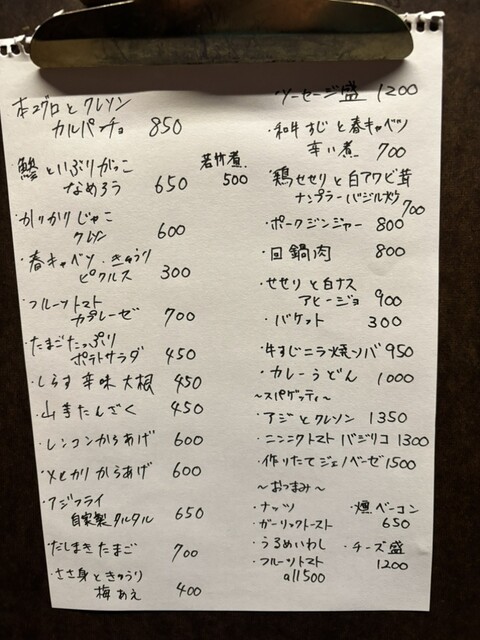 本マグロとクレソン
カルパッチョ 850
・鯵といぶりがっこ
なめろう 650
若竹煮
500
・かりかりじゃこ
クレソン 600
・春キャベツ・きゅうり
ピクルス 300
・フルーツトマト
カプレーゼ 700
・たまごたっぷり
ポテトサラダ 450
・しらす辛味大根 450
・山芋たんざく 450
・レンコンからあげ 600
・メヒカリからあげ 600
・アジフライ
自家製タルタル 650
・だしまきたまご 700
・ささ身ときゅうり
梅あえ 400
ソーセージ盛 1200
・和牛すじと春キャベツ
辛い煮 700
・鶏セセリと白アワビ茸
ナンプラーバジル炒め
700
・ポークジンジャー 800
・回鍋肉 800
・セセリと白ナス
アヒージョ 900
・バケット 300
・牛すじニラ焼ソバ 950
・カレーうどん 1000
〜スパゲッティ〜
・アジとクレソン 1350
・ニンニクトマトバジリコ 1300
・作りたてジェノベーゼ 1500
〜おつまみ〜
・ナッツ
・ガーリックトースト
・うるめいわし
・フルーツトマト
all500
・燻ベーコン
650
・チーズ盛
1200